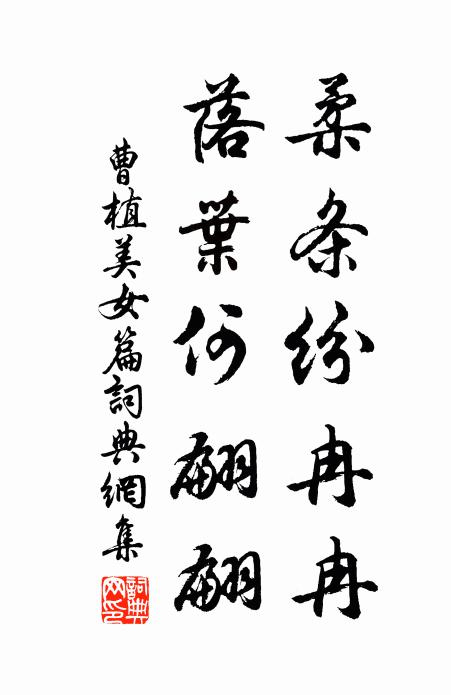 柔条紛冉冉
落葉何翩翩
曹植美女篇詞典網集
詞典網印